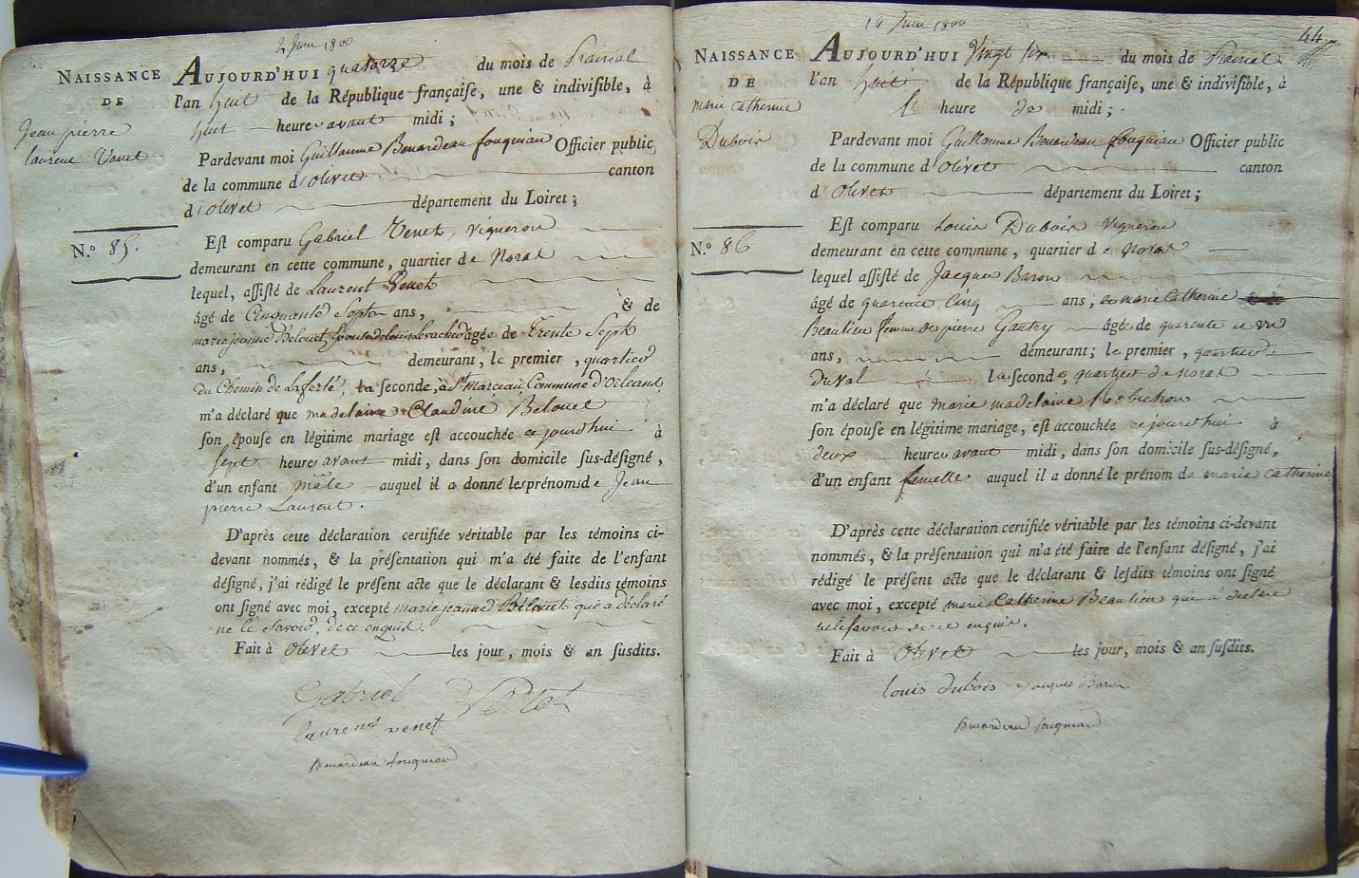 2 Juin 1800
NAISSANCE
DE
Jean pierre
laurent Venet
AUJOURD'HUI quatorze du mois de Prairial
l'an huit de la République françaiſe, une & indiviſible, à
huit heures avant midi ;
Pardevant moi Guillaume Benardeau fouqueau Officier public
de la commune d'Olivet canton
d'Olivet département du Loiret ;
N.º 85.
Eſt comparu Gabriel Venet, vigneron
demeurant en cette commune, quartier de Noras
lequel, aſſiſté de Laurent Venet
âgé de Cinquante Sept ans, & de
marie jeanne Belouet, âgée de Trente Sept
ans, demeurant, le premier, quartier
du Chemin de Laferté, la seconde, à St Marceau, Commune d'Orléans
m'a déclaré que madelaine Claudine Belouet
ſon épouſe en légitime mariage eſt accouchée cejourd'hui à
Sept heures avant midi, dans ſon domicile ſus-déſigné,
d'un enfant mâle auquel il a donné les prénoms de Jean
pierre Laurent.
D'après cette déclaration certifiée véritable par les témoins ci-
devant nommés, & la préſentation qui m'a été faite de l'enfant
déſigné, j'ai rédigé le préſent acte que le déclarant & leſdits témoins
ont ſigné avec moi, excepté marie jeanne Belouet qui a déclaré
ne le Savoir, de ce enquis.
Fait à Olivet les jour, mois & an ſusdits.
Gabriel Venet
laurens venet
Benardeau fouqueau
44
NAISSANCE
DE
marie Catherine
Dubois
Juin 1800
AUJOURD'HUI Vingt six du mois de Prairial
l'an huit de la République françaiſe, une & indiviſible, à
heure de midi ;
Pardevant moi Guillaume Benardeau fouqueau Officier public
de la commune d'Olivet canton
d'Olivet département du Loiret ;
N.º 86
Eſt comparu Louis Dubois Vigneron
demeurant en cette commune, quartier de Noras
lequel aſſiſté de Jacques Baron
âgé de quarente Cinq ans, et marie Catherine
Beaulieu femme de pierre âgée de quarente et un
ans, demeurant ; le premier, quartier
du val la seconde, quartier de noras
m'a déclaré que marie madelaine Robichon
ſon épouſe en légitime mariage, eſt accouchée cejourd'hui à
deux heures avant midi, dans ſon domicile ſus-déſigné,
d'un enfant femelle auquel il a donné le prénom de marie Catherine
D'après cette déclaration certifiée véritable par les témoins ci-devant
nommés, & la préſentation qui m'a été faite de l'enfant déſigné, j'ai
rédigé le préſent acte que le déclarant & leſdits témoins ont ſigné
avec moi, excepté marie Catherine Beaulieu qui a declaré
ne le ſavoir de ce enquis.
Fait à Olivet les jour, mois & an ſuſdits.
louis dubois Jacques Baron
Benardeau fouqueau